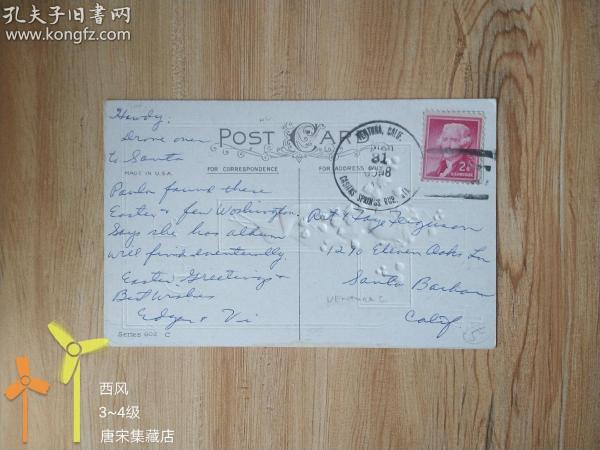 孔夫子旧书网
www.kongfz.com
POST CARD
MADE IN U.S.A.
FOR CORRESPONDENCE
FOR ADDRESS ONLY
Howdy:
Drove over
to Santa
Paula found these
Easter & few Washington.
Says she has album
will find eventually
Easter Greetings &
Best Wishes
Edgar & Vi
Series 602 C
VENTURA, CALIF.
31
2¢
Art & Faye Ferguson
1290 Eleven Oaks Ln
Santa Barbara
Calif.
VENTURA C
西风
3~4级
唐宋集藏店